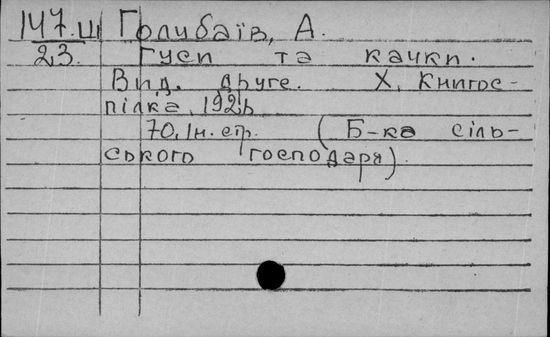 147.Ш Голубаїв, А.
23. Гуси та качки.
Вид. друге. Х. Книгос-
пілка, 192
70,1н. стр. (Б-ка сіль-
ського господаря).